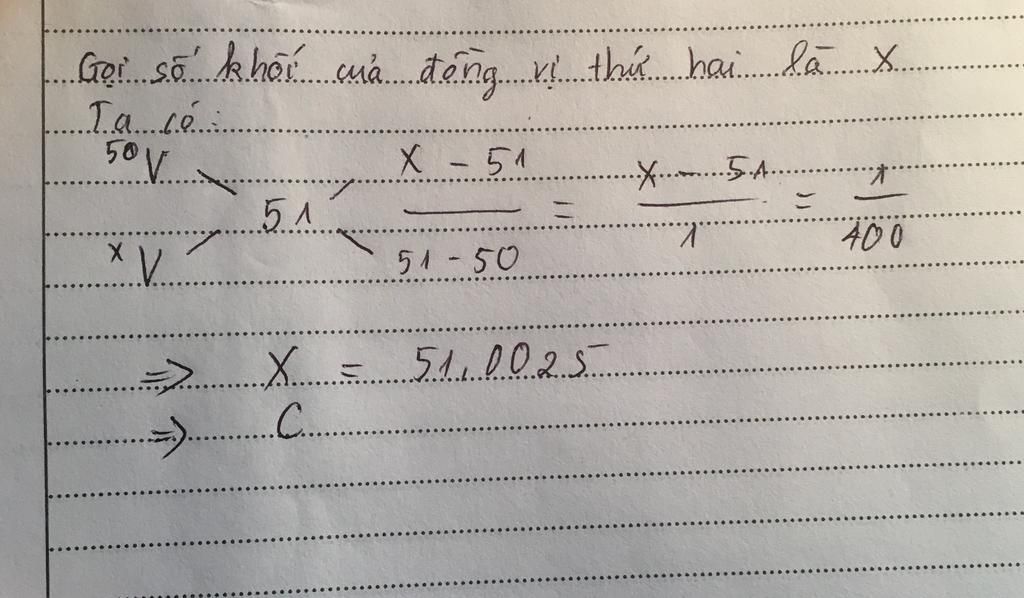 Gọi số khối của đồng vị thứ hai là X
Ta có:
⁵⁰V X - 51 X - 51 1
51 ─── = ─── = ───
ˣV 51 - 50 1 400
⇒ X = 51,0025
⇒ C